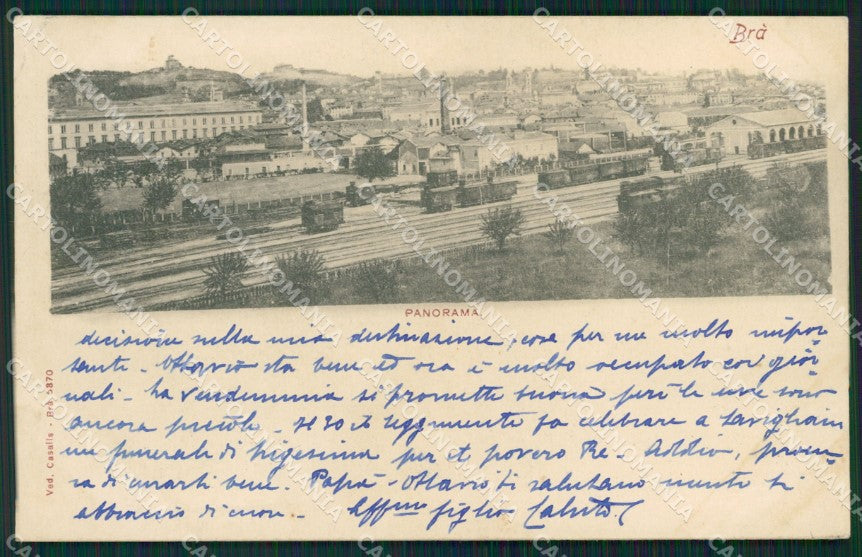 Brà
PANORAMA.
decisione sulla mia destinazione, cosa per me molto impor
tante. Ottavio sta bene ed ora è molto occupato coi gior-
nali. La Vendemmia si promette buona però le uve sono
ancora piccole. Il 30 il reggimento fa celebrare a Savigliano
un funerale di trigesima per il povero Re. Addio, procu-
ra di curarti bene. Papà - Ottavio ti salutano mentre ti
abbraccio di cuore. Affmo figlio
Ved. Casalis - Brà 5870
CARTOLINOMANIA.COM